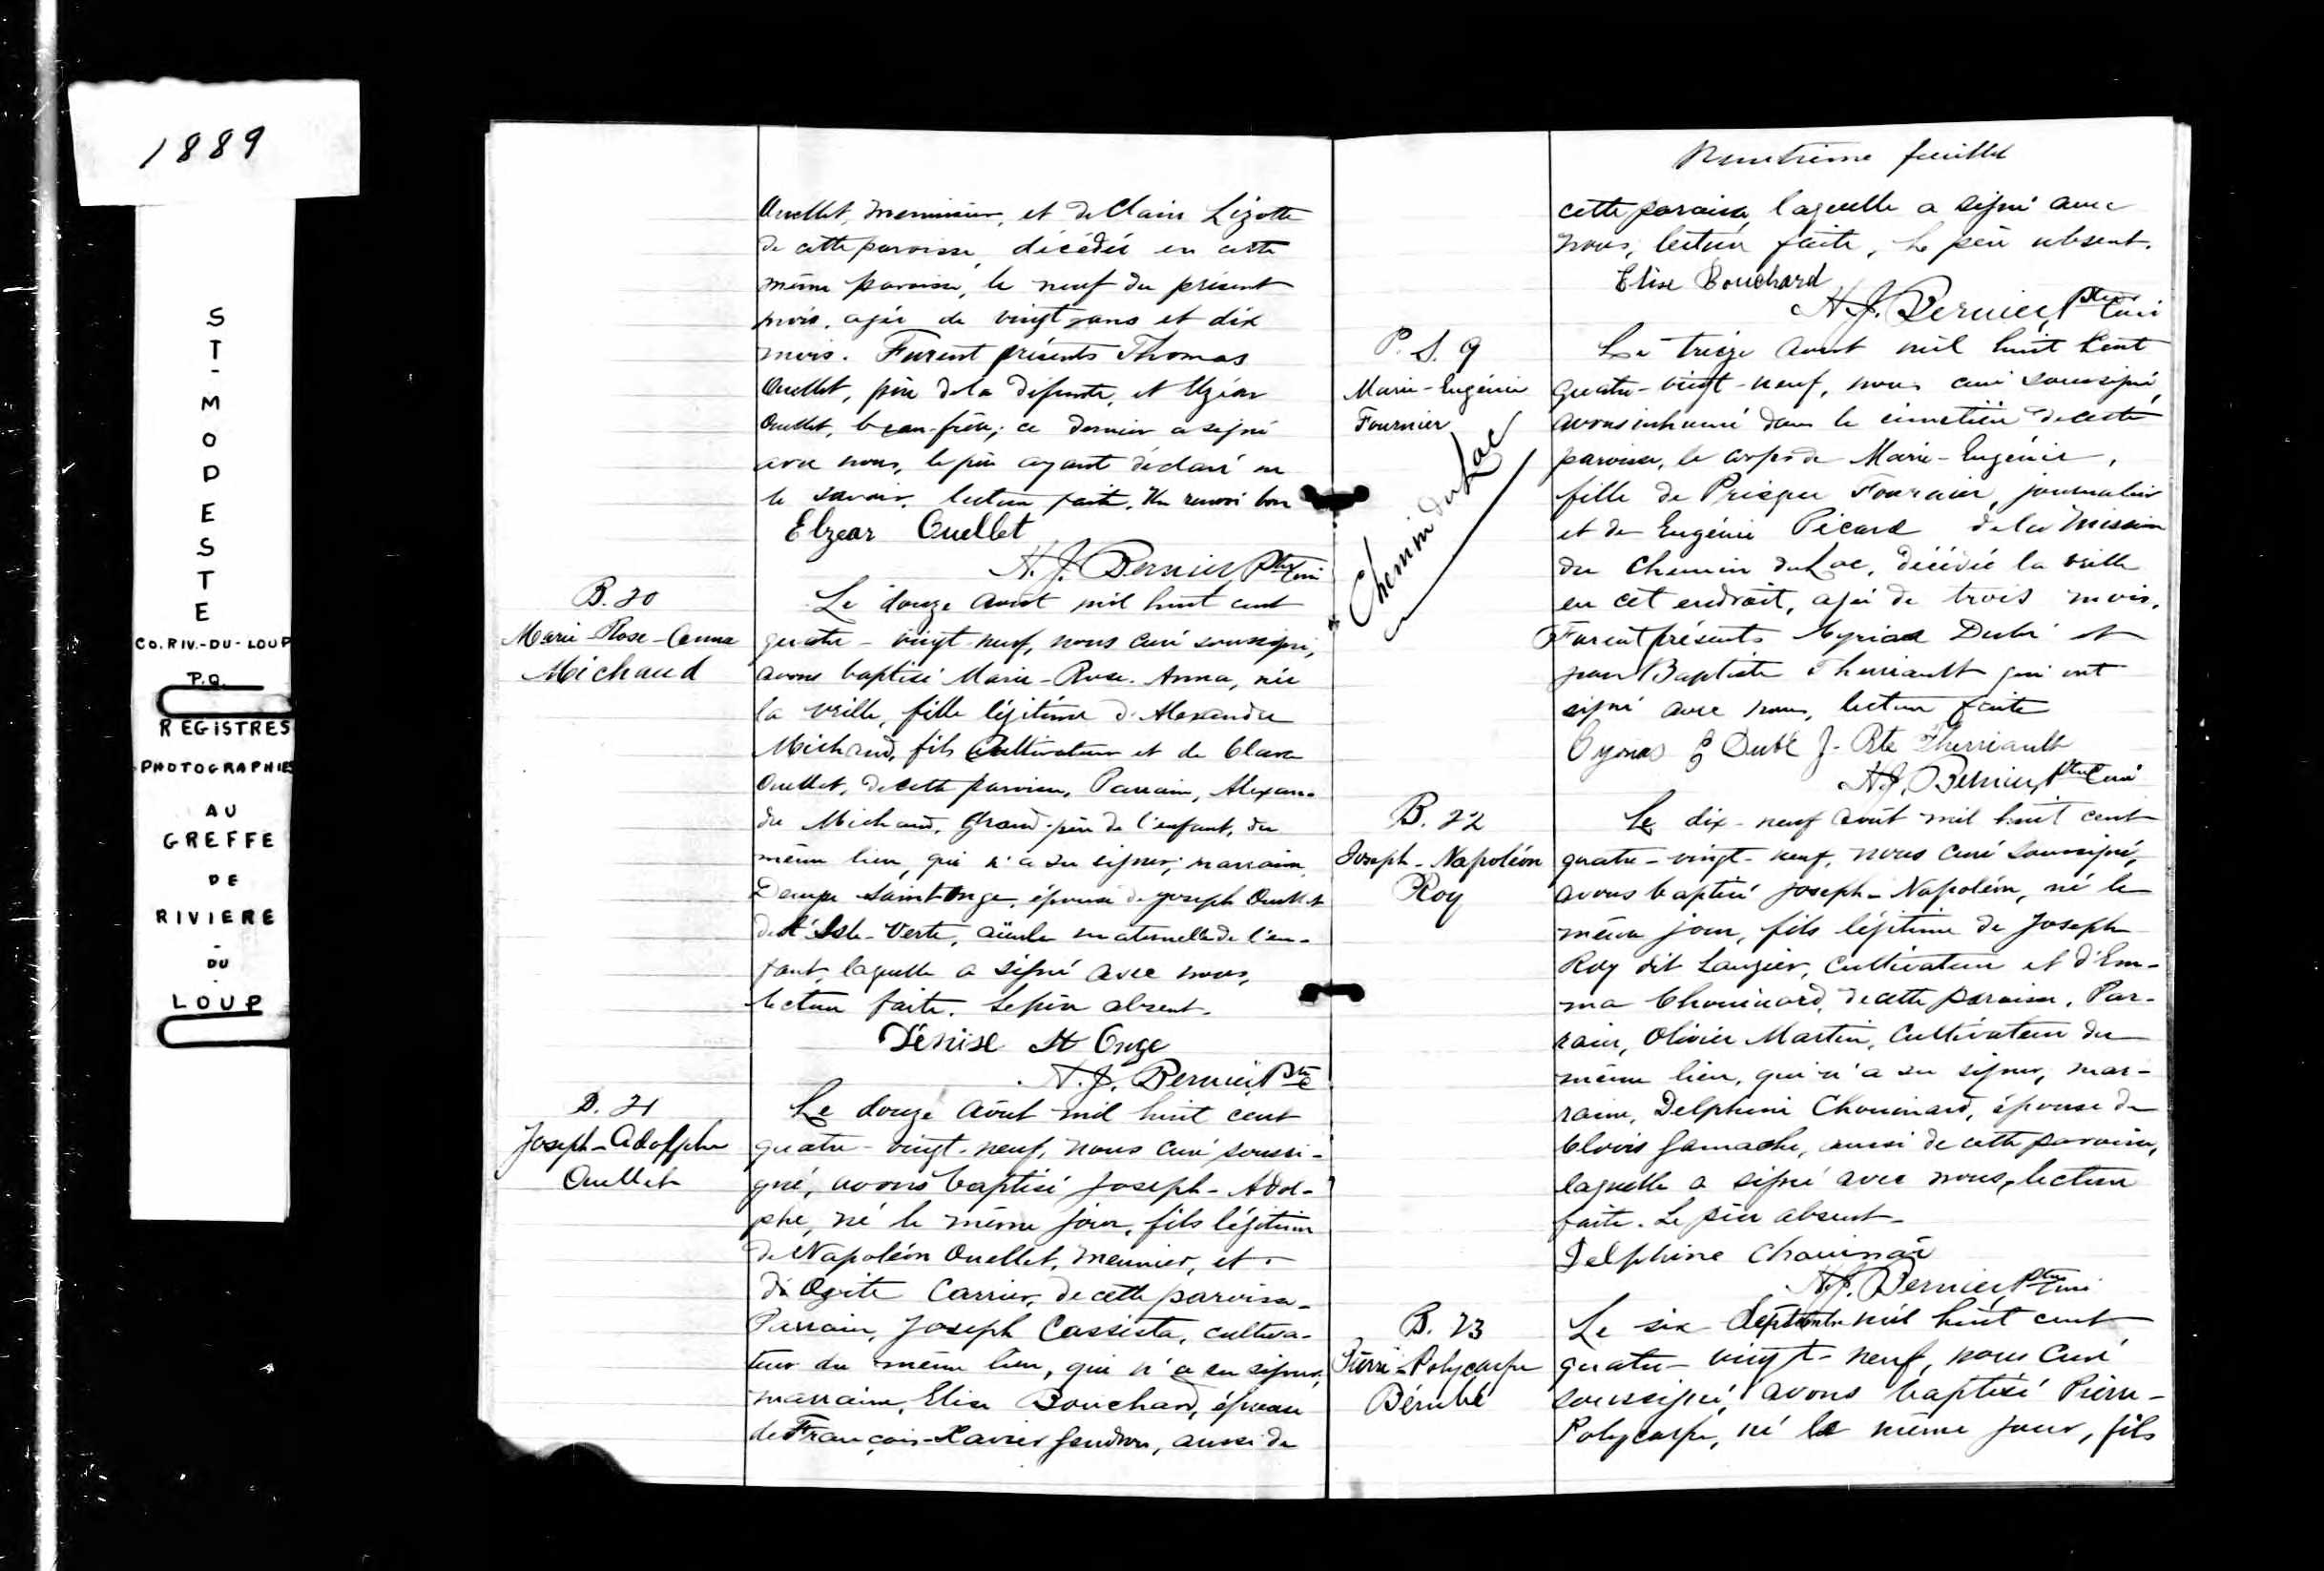 1889
ST-MODESTE
CO. RIV.-DU-LOUP
P.Q.
REGISTRES
PHOTOGRAPHIES
AU
GREFFE
DE
RIVIERE
-
DU
-
LOUP
Ouellet, menuisier, et de Claire Lizotte
de cette paroisse, décédée en cette
même paroisse, le neuf du présent
mois, agée de vingt ans et dix
mois. Furent présents Thomas
Ouellet, père de la défunte, et Elzéar
Ouellet, beau-frère; ce dernier a signé
avec nous, le père ayant déclaré ne
le savoir, lecture faite. Un renvoi bon
Elzear Ouellet
N. J. Bernier, Ptre Curé
B. 20
Marie-Rose-Anna
Michaud
Le douze Aout mil huit cent
quatre-vingt neuf, nous curé soussigné,
avons baptisé Marie-Rose-Anna, née
la veille, fille légitime d'Alexandre
Michaud, fils Cultivateur et de Clara
Ouellet, de cette paroisse, Parrain, Alexan-
dre Michaud, grand-père de l'enfant, du
même lieu, qui n'a su signer; marraine
Saint Onge, épouse de Joseph Ouellet
de l'Isle-Verte, aïeule maternelle de l'en-
fant, laquelle a signé avec nous,
lecture faite. Le père absent.
Dénise St Onge
N. J. Bernier, Ptre
B. 21
Joseph-Adolphe
Ouellet
Le douze Août mil huit cent
quatre-vingt-neuf, nous curé soussi-
gné, avons baptisé Joseph-Adol-
phe, né le même jour, fils légitime
de Napoléon Ouellet, meunier, et
d' Carrier, de cette paroisse-
Parrain, Joseph Cassista, cultiva-
teur du même lieu, qui n'a su signer,
marraine, Elise Bouchard, épouse
de François-Xavier Gendron, aussi de
Neuvième feuillet
cette paroisse, laquelle a signé avec
nous, lecture faite, Le père absent.
Elise Bouchard
N. J. Bernier, Ptre Curé
P. S. 9
Marie-Eugénie
Fournier
Chemin du Lac
Le treize Aout mil huit Cent
quatre-vingt-neuf, nous curé soussigné,
avons inhumé dans le cimetière de cette
paroisse, le corps de Marie-Eugénie,
fille de Prisque Fournier, journalier
et de Eugénie Picard de la Mission
du Chemin du Lac, décédée la veille
en cet endroit, agée de trois mois.
Furent présents Dubé et
Jean Baptiste Theriault qui ont
signé avec nous, lecture faite
Dubé J-Bte Therriault
N. J. Bernier, Ptre Curé
B. 22
Joseph-Napoléon
Roy
Le dix-neuf Août mil huit cent
quatre-vingt-neuf, nous Curé Soussigné,
avons baptisé Joseph-Napoléon, né le
même jour, fils légitime de Joseph
Roy dit Lauzier, Cultivateur et d'Em-
ma Chouinard, de cette paroisse. Par-
rain, Olivier Martin, Cultivateur du
même lieu, qui n'a su signer, mar-
raine, Delphine Chouinard, épouse de
Clovis Gamache, aussi de cette paroisse,
laquelle a signé avec nous, lecture
faite. Le père absent-
Delphine Chouinar
N. J. Bernier, Ptre Curé
B. 23
Pierre-Polycarpe
Bérubé
Le six Septembre mil huit cent
quatre-vingt-neuf, nous Curé
soussigné, avons baptisé Pierre-
Polycarpe, né le même jour, fils